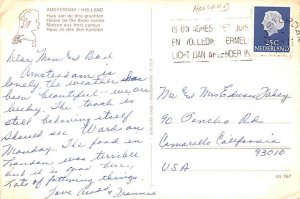 AMSTERDAM - HOLLAND
Huis aan de drie grachten
House on the three canals
Maison aux trois canaux
Haus an den drei Kanälen
HOLLAND
IS UW ADRES JUIST
EN VOLLEDIG VERMELD
LICHT DAN AFZENDER IN
NEDERLAND
25c
Dear Mom and Dad
Amsterdam is
lovely, the weather has
been beautiful - we are
lucky. The tooth is
still behaving itself
Should see Ward on
Monday. The food in
London was terrible
but it is good here.
Lots of fattening things.
Love
Mr and Mrs Edwin
90 Poncho Rd
Camarillo California
93010
USA